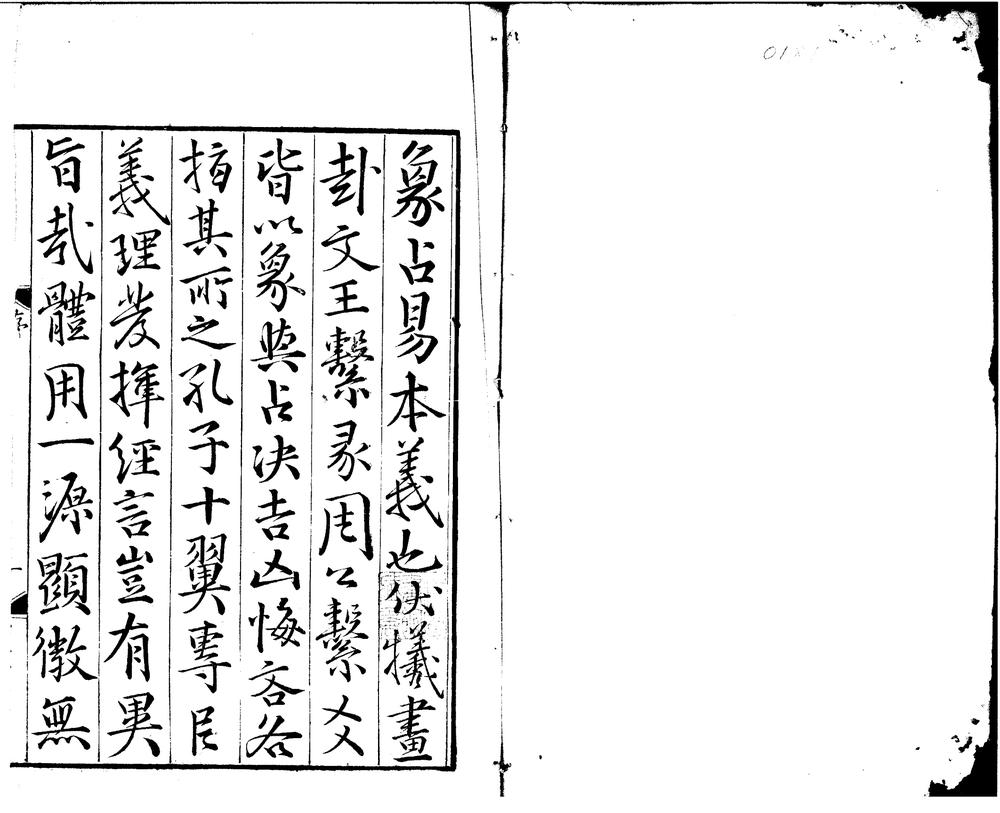 象占易本義也伏犧畫
卦文王繫彖周公繫爻
皆以象與占决吉凶悔吝各
指其所之孔子十翼專用
義理發揮經言豈有異
旨哉體用一源顯微無
序
一